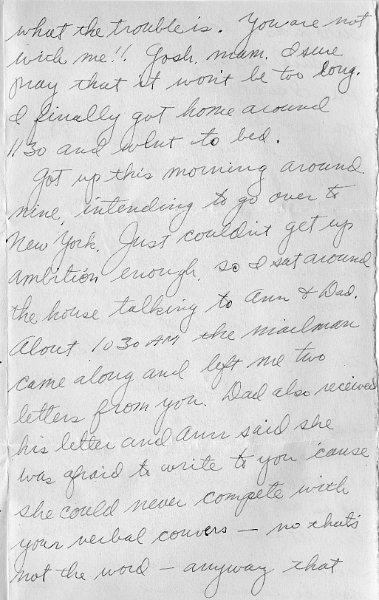 what the trouble is. You are not
with me!! Gosh, mam, I sure
pray that it won't be too long.
I finally got home around
1130 and went to bed.
Got up this morning around
nine, intending to go over to
New York. Just couldn't get up
ambition enough, so I sat around
the house talking to Ann & Dad.
About 1030 AM the mailman
came along and left me two
letters from you. Dad also received
his letter and Ann said she
was afraid to write to you 'cause
she could never compete with
your verbal convers — no that's
not the word — anyway that